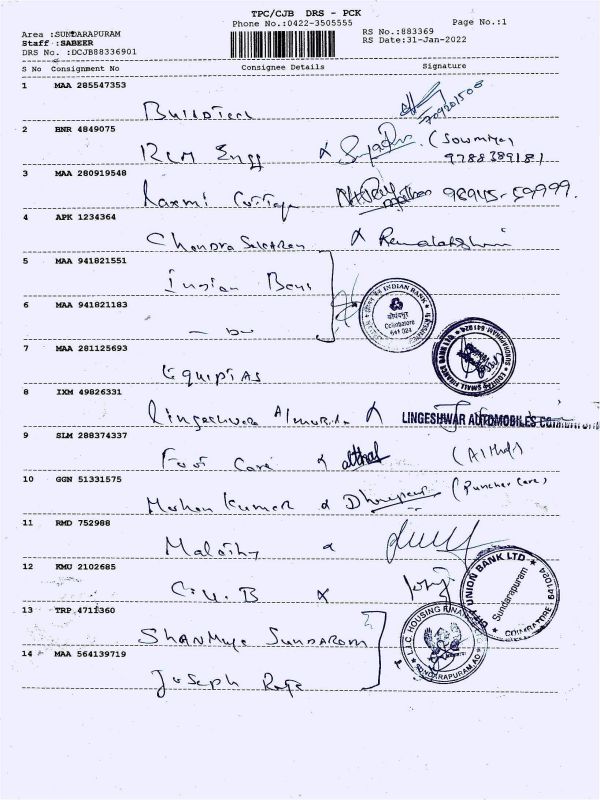 TPC/CJB DRS - PCK
Phone No.:0422-3505555
Page No.:1
Area :SUNDARAPURAM
RS No.:883369
Staff :SABEER
RS Date:31-Jan-2022
DRS No. :DCJB88336901
S No Consignment No Consignee Details Signature
1 MAA 285547353
Buildtech
709201508
2 BNR 4849075
RCM Engg X (Sowmiya)
9788389181
3 MAA 280919548
Laxmi 96945-59999.
4 APK 1234364
Chandra Sekaran X Ramalakshmi
5 MAA 941821551
Indian Bank
INDIAN BANK
Coimbatore
641 024
6 MAA 941821183
- Do -
7 MAA 281125693
Equitas
EQUITAS SMALL FINANCE BANK LTD
SUNDARAPURAM 641 024
8 IXM 49826331
Lingeshwar X
LINGESHWAR AUTOMOBILES
9 SLM 288374337
Foot Care X althaf (Althaf)
10 GGN 51331575
Mohan Kumar (Puncher Care)
11 RMD 752988
Malathy
12 KMU 2102685
C.U.B X
CITY UNION BANK LTD
Sundarapuram
COIMBATORE 641024
13 TRP 4711360
Shanmuga Sundaram
L.I.C. HOUSING FINANCE
SUNDARAPURAM AO
14 MAA 564139719
Joseph